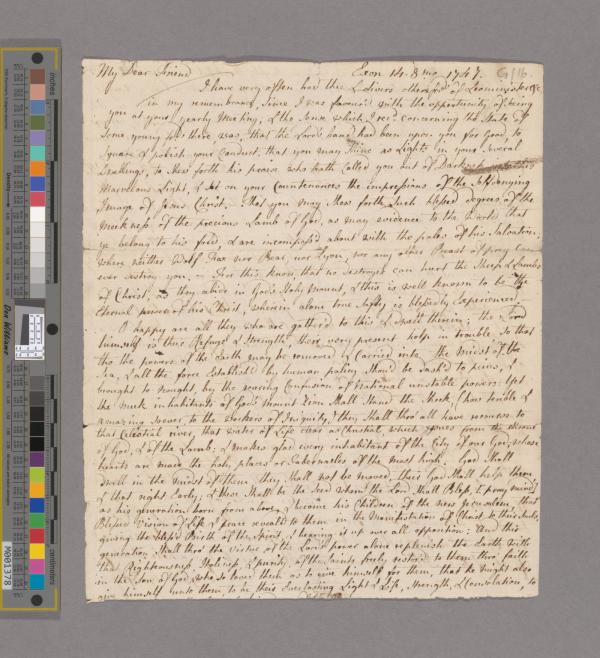 My Dear Friend Exon 14. 8 mo. 1747.
I have very often had the & divers others of Leominster &c
in my remembrance, Since I was favour'd with the opportunity of being
you at your yearly Meeting, & the Sense which I rec'd concerning the State of
Some young ones there was, that the Lord's hand had been upon you for Good, to
Square & polish your Conduct, that you may Shine as Lights in your Several
Dwellings, to Shew forth his praise who hath Called you out of Darkness
Marvelous Light, & Set on your Countenances the impressions of the Self denying
Image of Jesus Christ, that you may Shew forth Such blessed degrees of the
Meekness of the precious Lamb of God, as may evidence to the World that
ye belong to his fold, & are incompass'd about with the pales of his Salvation,
where neither Wolf, Fox nor Bear, nor Lyon, nor any other Beast of prey Can
ever destroy you. — For this know, that no destroyer can hurt the Sheep & Lambs
of Christ, as they abide in God's Holy Mount, & this is well known to be the
Eternal power of his Christ, wherein alone true Safety is blessedly Experienced.
O happy are all they who are gathered to this & dwell therein; the Lord
himself is their Refuge & Strength, their very present help in trouble, So that
tho the powers of the Earth may be removed & Carried into the midst of the
Sea, & all the force Establish'd by human policy Should be dash'd to peices, &
brought to nought, by the roaring Confusion of National unstable powers: Yet
the meek inhabitants of God's Mount Zion Shall Stand the Shock, (how terrible &
amazing Soever, to the Workers of Iniquity) they Shall thro' all have recourse to
that Celestial river, that water of Life clear as Christial, which issues from the throne
of God, & of the Lamb; & makes glad every inhabitant of the City of our God, whose
hearts are made the holy places or Tabernacles of the most high. God Shall
dwell in the midst of them, they Shall not be moved, their God Shall help them
& that right Early; & these Shall be the Seed whom the Lord Shall Bless,
as his generation born from above, & become his Children of the new Jerusalem, that
Blessed Vision of Life & peace reveal'd to them in the Manifestation of Christ in their Souls,
giving the Blessed Birth of the Spirit, & bearing it up over all opposition: And this
generation Shall thro' the virtue of the Lord's power alone replenish the Earth with
the Righteousness, Holiness, & purity, of the Saints, freely restor'd to them thro' faith
in the Son of God, who So loved them as to give himself for them, that he might also
give himself unto them to be their Everlasting Light & Life, Strength, & Consolation, to
inches
centimeters
Don Williams
M001378